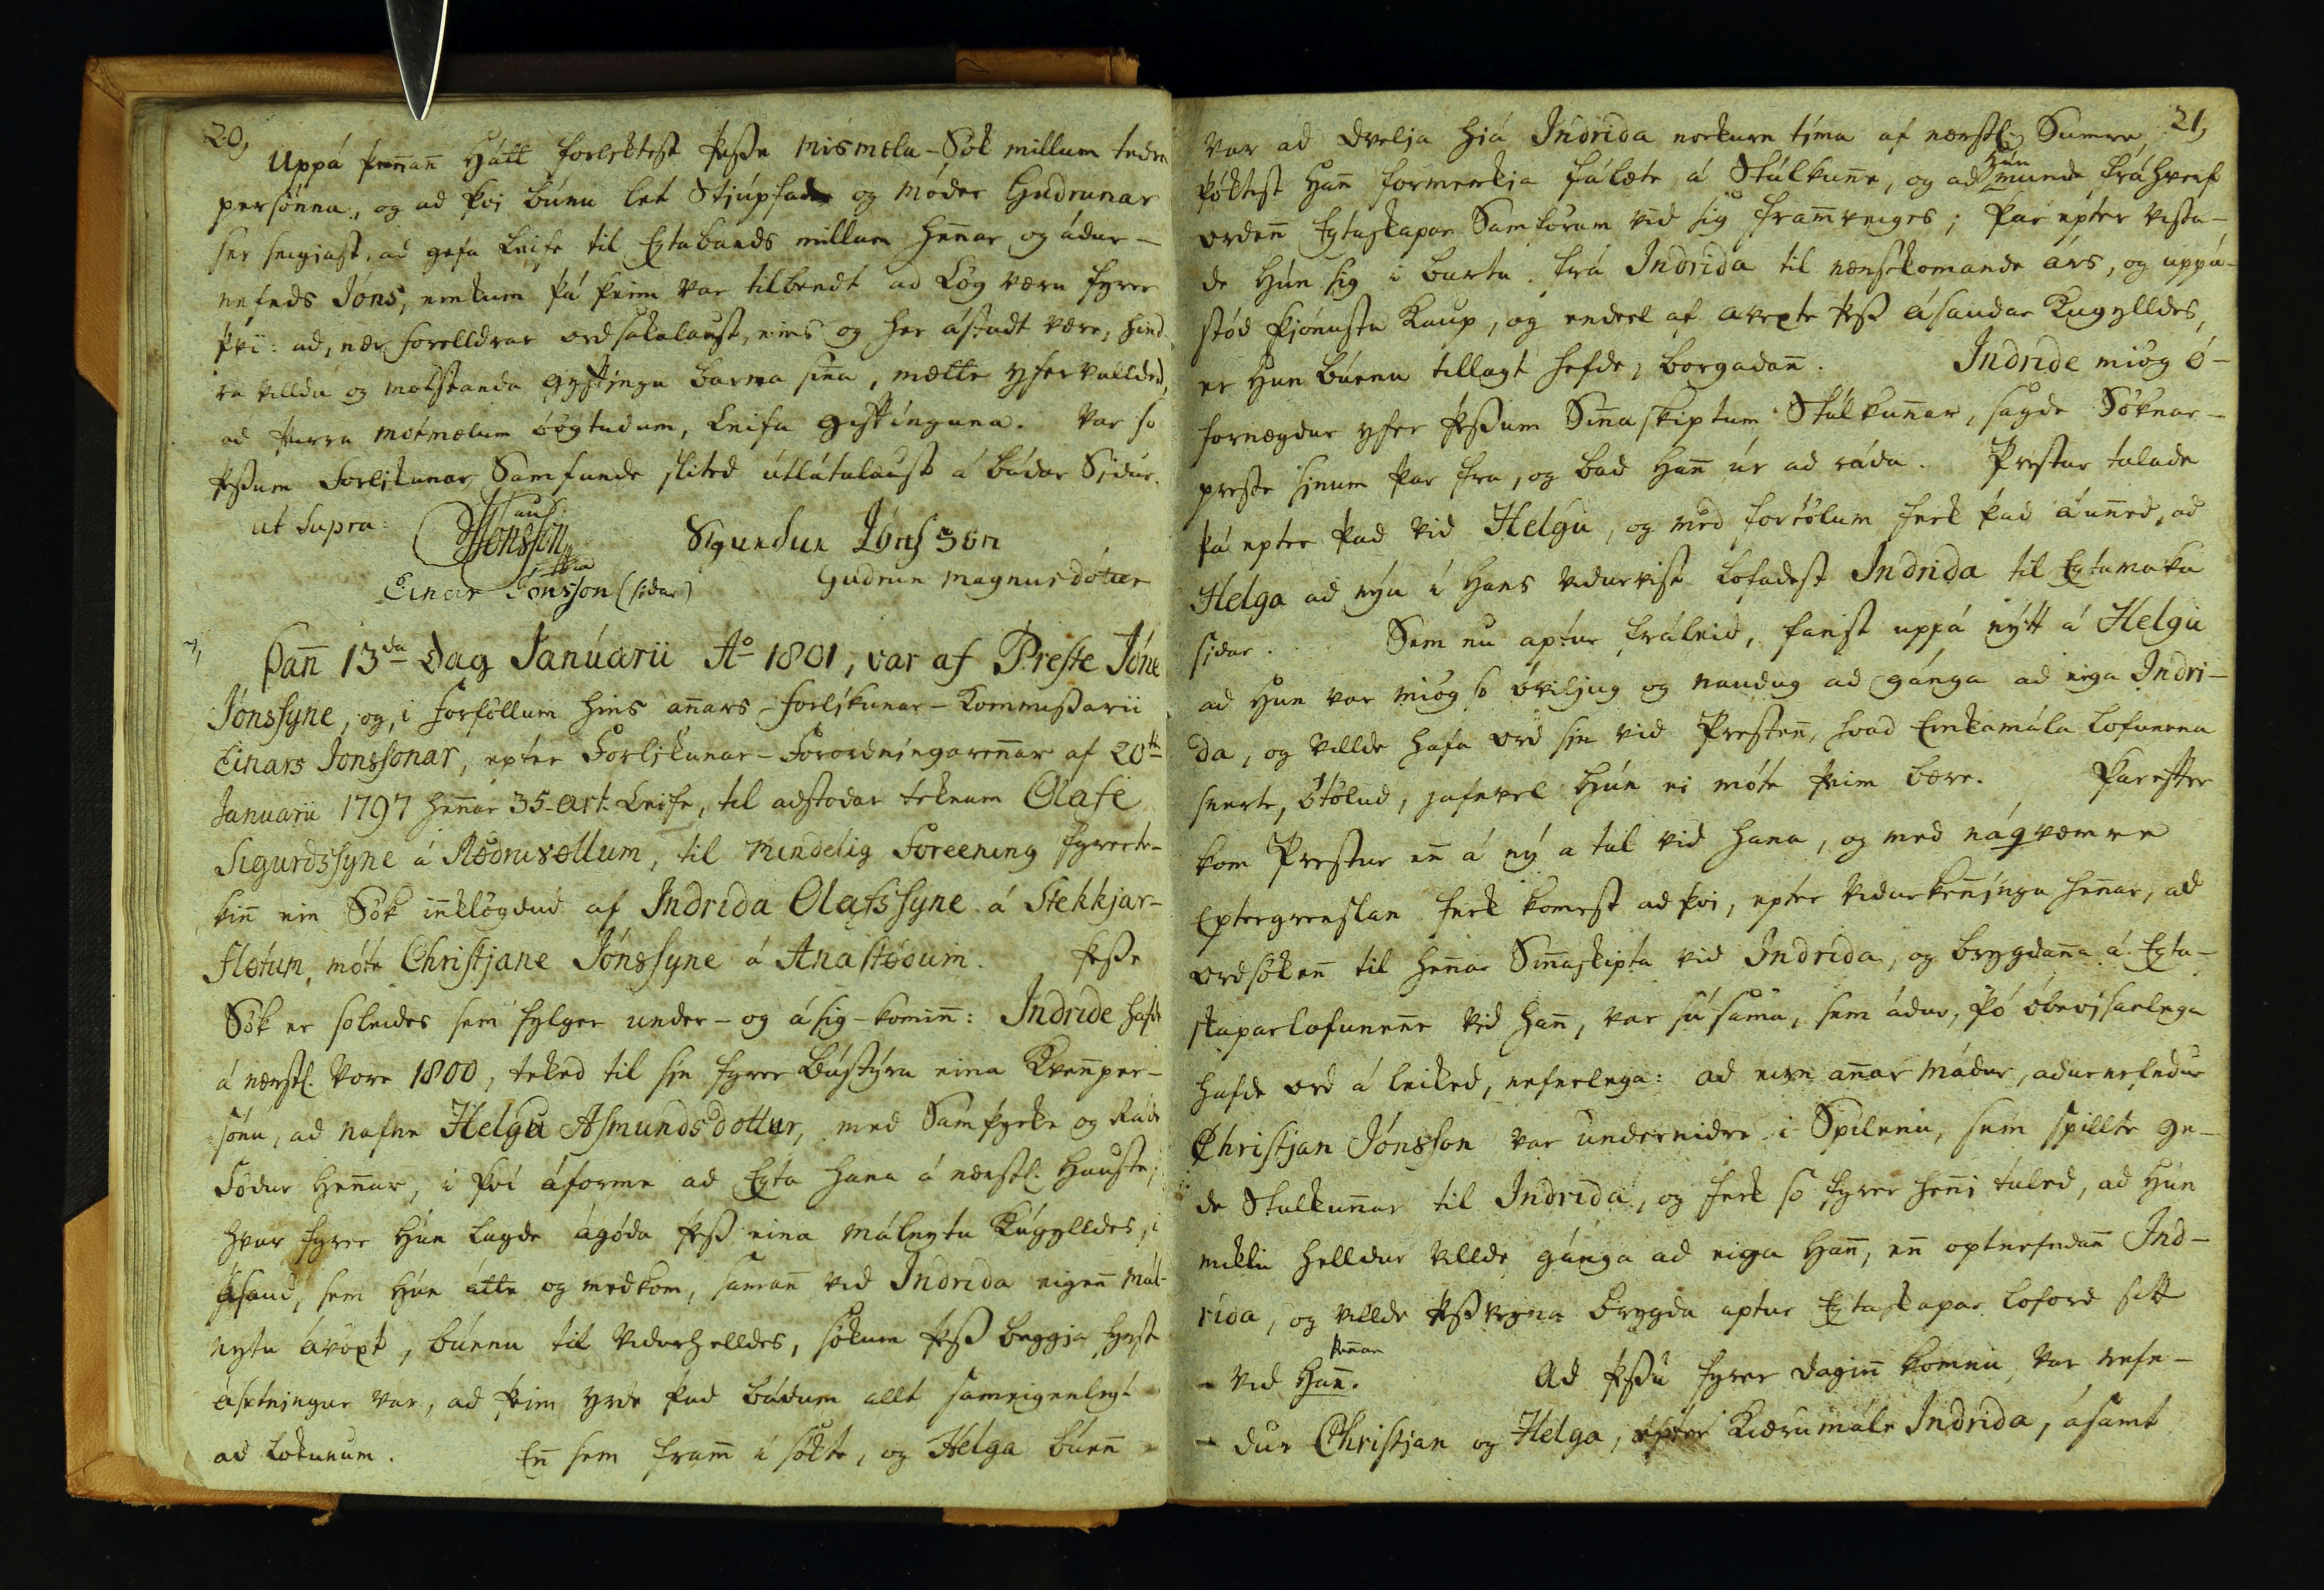 20,
Uppá þennañ Hátt forlektest þesse mismæla-Sök millum tedra
persónna, og ad þvi búnu let Stjúpfader og Móder Gudrunar
sier segiast, ad gefa Leife til Egtabands millum Heñar og ádur-
nefnds Jóns, einkum þá þeim var tilbendt ad Lög være fyrer
þvi: ad, nær Forelldrar ordsakalaust, eins og her ástadt være, hind-
ra villdu og mótstanda gyftingu barna sïna, mætte yfervalldid,
ad þeirra mótmælum óögtudum, Leifa giftinguna. Var so
þessum Forlikunar Samfunde slited útlátalaust á bádar Sidur.
ut supra:
JJonsson
Sigurdur Jónsson
Einar Jónsson (sidar)
Gudrun Magnusdóttur
7,
Þañ 13da Dag Januarii Ao 1801, var af Preste Jóne
Jónssyne, og, i Forföllum hins añars Forlikunar-Kommissarii
Einars Jonssonar, epter Forlikunar-Forordningareñar af 20ta
Januarii 1797 heñar 35 art. Leife, til adstodar teknum Olafe
Sigurdssyne á Nedruvøllum, til mindelig Foreening fyrerte-
kin ein Sök iñklögdud af Indrida Olafssyne á Stekkjar-
flötum, móte Christjane Jónssyne á Anastödum. Þesse
Sök er soleides sem fylger under- og ásig-komiñ: Indride hafde
á næstl. Vore 1800, teked til sin fyrer Bústýru eina Kveñper-
sónu, ad nafne Helgu Asmundsdottur, med Samþycke og Ráde
Födur Heñar, i þvi áforme ad Egta hana á næstl. Hauste,
hvar fyrer Hún lagde ágóda þess eina málnytu Kúgylldes, i
Asaud, sem Hún átte og medkom, samañ vid Indrida eigeñ mál-
nytu ávöxt, búenu til Vidurhelldes, sökum þess beggia þeirra
ásetningur var, ad þeim yrde þad bádum allt sameigenlegt
ad lokunum. Eñ sem fram i sókte, og Helga búeñ
21,
var ad dvelja hiá Indrida nockurn tima af næstl. Sumre,
þóktest Hañ formerkja fálæte á Stúlkuñe, og ad Hún munde fráhverf
ordeñ Egtaskapar Samförum vid sig framveiges; Þar epter vista-
de Hún sig i burtu frá Indrida til næstkomande árs, og uppá-
stód Þjónustu Kaup, og endeel af avexte þess ásaudar Kugylldes,
er Hun búenu tillagt hefde, borgadañ. Indride miög ó-
fornægdur yfer þessum Siñaskiptum Stúlkuñar, sagde Sóknar-
preste sinum þar frá, og bad Hañ úr ad ráda. Prestur talade
þá epter þad vid Helgu, og med fortölum feck þad áuñed, ad
Helga ad nýu i Hans vidurvist lofadest Indrida til Egtamaka
sidar. Sem nu aptur fráleid, fanst uppá nýtt á Helgu
ad Hun var miög so óviljug og naudug ad gánga ad eiga Indri-
da, og villde hafa ord sin vid Presteñ, hvad Einkamála lofunena
snerte, ótölud, jafnvel Hún ei móte þeim bære. Þarefter
kom Prestur eñ á ný a tal vid Hana, og med nágvæmre
Eptergrenslan feck komest ad þvi, epter vidurkeñingu heñar, ad
ordsökeñ til heñar Siñaskipta vid Indrida, og brygdaña á Egta-
skaparlofuneñe vid hañ, var sú sama, sem ádur, þó óbevisanlega
hafde ord á leiked, nefnelega: ad eirn añar madur, adurnefndur
Christjan Jónsson var undernidre i Spilenu, sem spillte ge-
de Stulkuñar til Indrida, og feck so fyrer heñi taled, ad Hún
miklu helldur villde gánga ad eiga Hañ, eñ optnefndañ Ind-
rida, og villde þessvegna brygda aptur Egtaskapar Loford sitt
- vid Hañ. Ad þessu fyrer dagiñ komnu, var nefn-
- dur Christjan og Helga, epter Kiærumále Indrida, ásamt